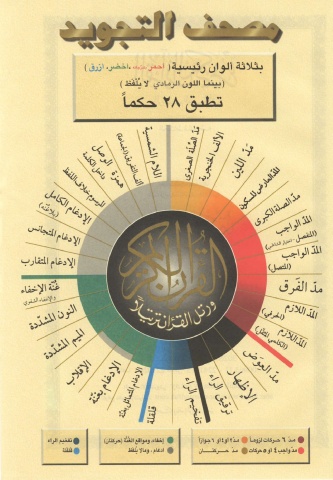 مصحف التجويد
بثلاثة ألوان رئيسية (أحمر، أخضر، ازرق)
(بينما اللون الرمادي لا يُلفَظ)
تطبق ٢٨ حكماً
اللام الشمسية
همزة الوصل
المرسوم خلاف اللفظ
الإدغام الكامل
الإدغام المتجانس
الإدغام المتقارب
غنّة الإخفاء
النون المشدّدة
الميم المشدّدة
الإقلاب
الإدغام بغنّة
قلقلة
تفخيم الراء
ترقيق الراء
الإظهار
مدّ العوض
المدّ اللازم
المدّ اللازم
(الحرفي)
مدّ الفرق
المدّ الواجب
(المتصل)
المدّ الواجب
مدّ الصلة الكبرى
المدّ العارض للسكون
مدّ اللين
مدّ الصلة الصغرى
الألف الخنجرية
القرآن الكريم
ورتل القرآن ترتيلاً
مدّ ٦ حركات لزوماً
مدّ ٢ او ٤ او ٦ جوازاً
مدّ واجب ٤ او ٥ حركات
مدّ حركتان
إخفاء، ومواقع الغنّة (حركتان)
ادغام، ومالا يُلفظ
تفخيم الراء
قلقلة